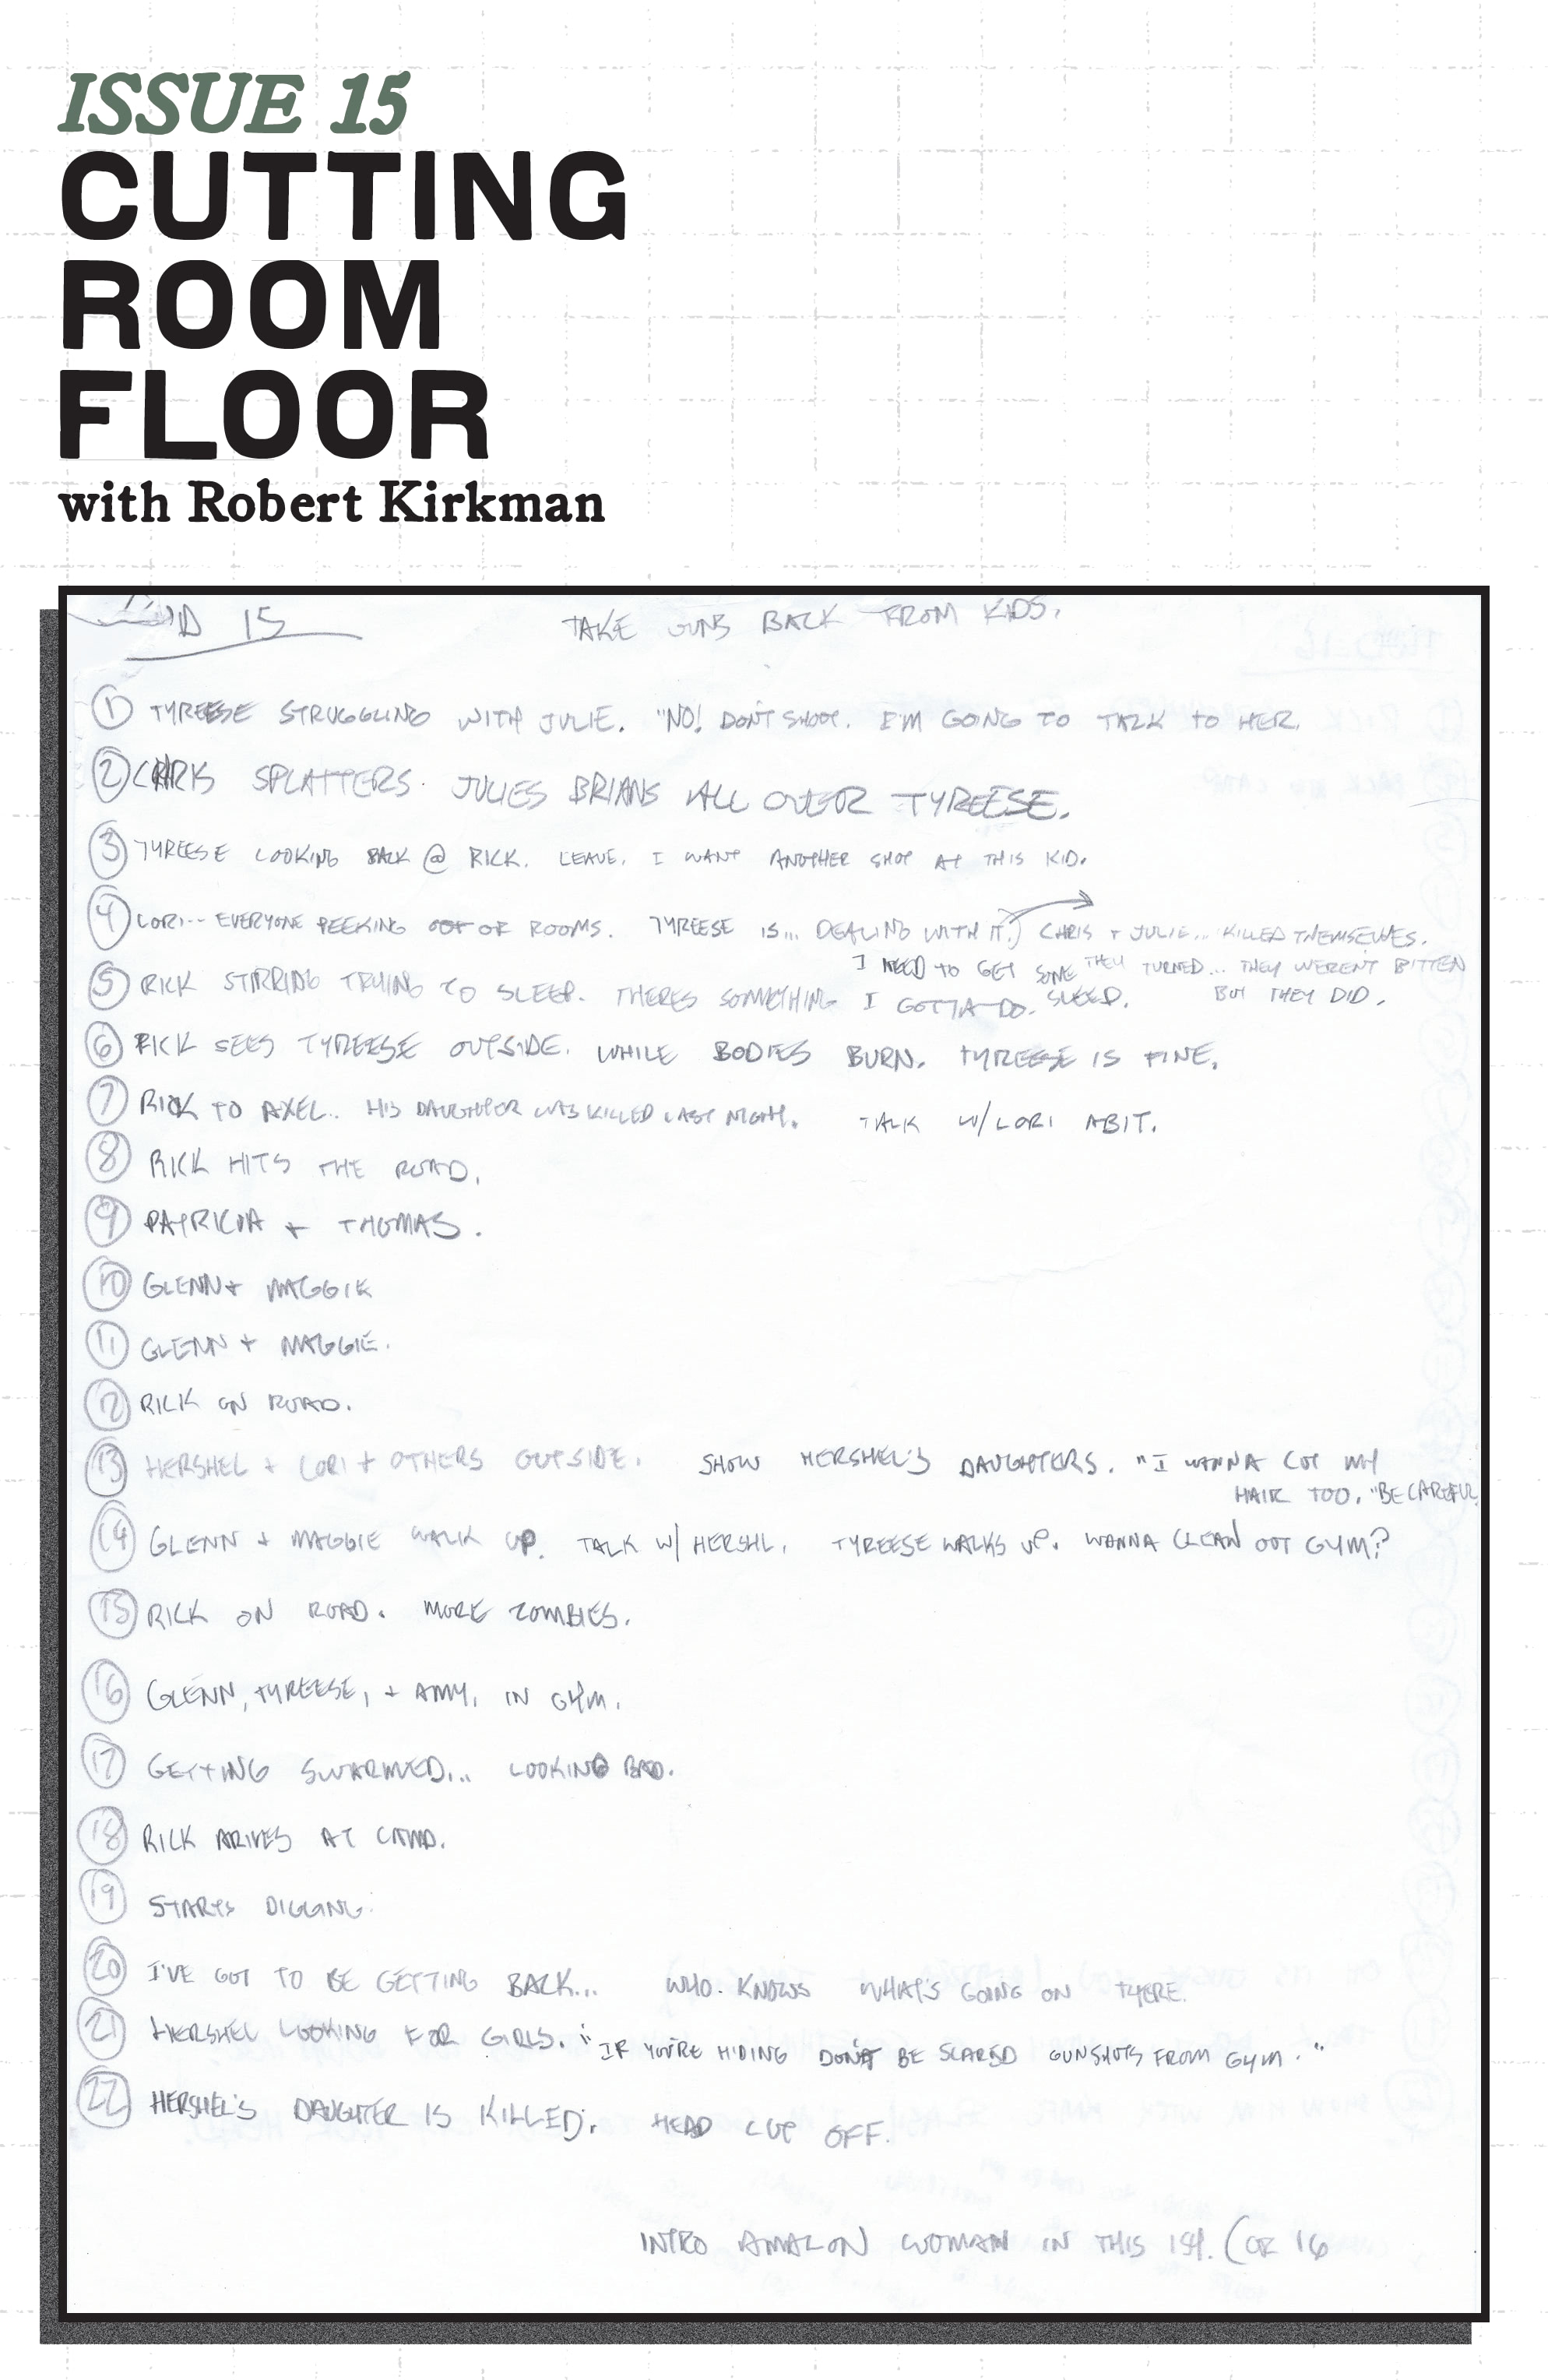 ISSUE 15
CUTTING
ROOM
FLOOR
with Robert Kirkman
15
TAKE GUNS BACK FROM KIDS.
1 TYREESE STRUGGLING WITH JULIE. "NO! DON'T SHOOT. I'M GOING TO TALK TO HER.
2 CHRIS SPLATTERS JULIES BRIANS ALL OVER TYREESE.
3 TYREESE LOOKING BACK @ RICK. LEAVE. I WANT ANOTHER SHOT AT THIS KID.
4 LORI... EVERYONE PEEKING OUT OF ROOMS. TYREESE IS... DEALING WITH IT. CHRIS + JULIE... KILLED THEMSELVES.
THEY TURNED... THEY WEREN'T BITTEN
BUT THEY DID.
I NEED TO GET SOME
SLEEP.
5 RICK STIRRING TRYING TO SLEEP. THERES SOMETHING I GOTTA DO.
6 RICK SEES TYREESE OUTSIDE. WHILE BODIES BURN. TYREESE IS FINE.
7 RICK TO AXEL.. HIS DAUGHTER WAS KILLED LAST NIGHT. TALK W/LORI ABIT.
8 RICK HITS THE ROAD.
9 PATRICIA + THOMAS.
10 GLENN + MAGGIE
11 GLENN + MAGGIE.
12 RICK ON ROAD.
13 HERSHEL + LORI + OTHERS OUTSIDE. SHOW HERSHEL'S DAUGHTERS. "I WANNA CUT MY
HAIR TOO. "BE CAREFUL
14 GLENN + MAGGIE WALK UP. TALK W/ HERSHL. TYREESE WALKS UP. WANNA CLEAN OUT GYM?
15 RICK ON ROAD. MORE ZOMBIES.
16 GLENN, TYREESE, + AMY, IN GYM.
17 GETTING SWARMED... LOOKING BAD.
18 RICK ARIVES AT CAMP.
19 STARTS DIGGING.
20 I'VE GOT TO BE GETTING BACK... WHO KNOWS WHAT'S GOING ON THERE.
21 HERSHEL LOOKING FOR GIRLS. "IF YOU'RE HIDING DON'T BE SCARED GUNSHOTS FROM GYM."
22 HERSHEL'S DAUGHTER IS KILLED. HEAD CUT OFF.
INTRO AMAZON WOMAN IN THIS ISH. (OR 16